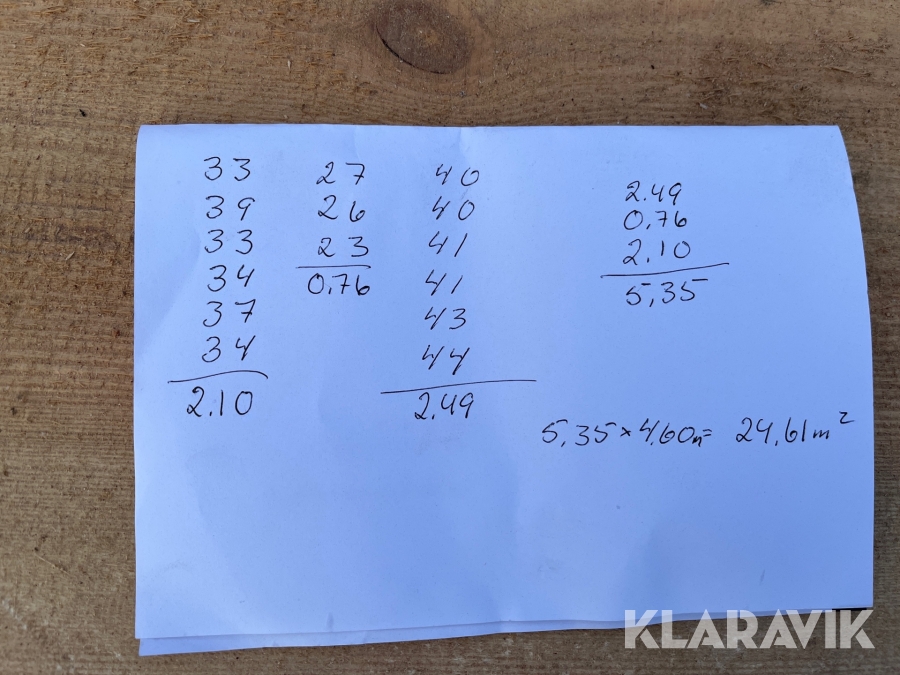 33
39
33
34
37
34
2.10
27
26
23
0.76
40
40
41
41
43
44
2.49
2.49
0.76
2.10
5,35
5,35 × 4,60m = 24,61m²
KLARAVIK